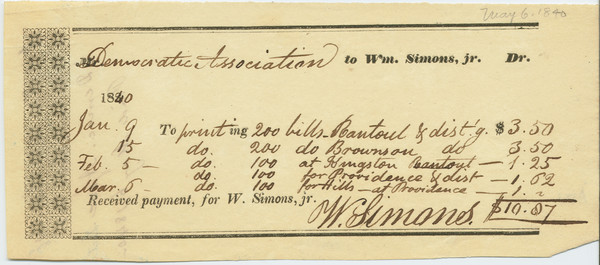 May 6. 1840
Mr. Democratic Association to Wm. Simons, jr. Dr.
1840
Jan. 9 To printing 200 bills - Rantoul & dist'g. $3.50
15 do. 200 do Brownson do 3.50
Feb. 5 - do. 100 at Kingston Rantoul - 1.25
do. 100 for Providence & dist - 1.62
Mar. 6 - do. 100 for Hills - at Providence - 1. "
Received payment, for W. Simons, jr. $10.87
W. Simons.